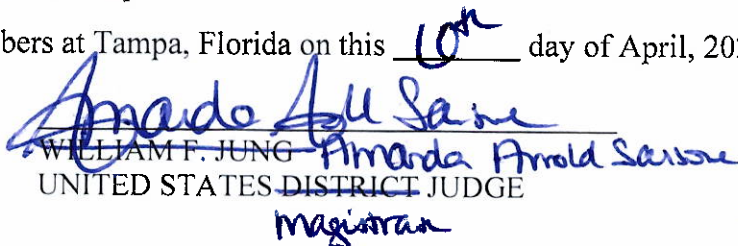 bers at Tampa, Florida on this 10th day of April, 20
Amanda Arnold Sansone
WILLIAM F. JUNG Amanda Arnold Sansone
UNITED STATES DISTRICT JUDGE
Magistrate